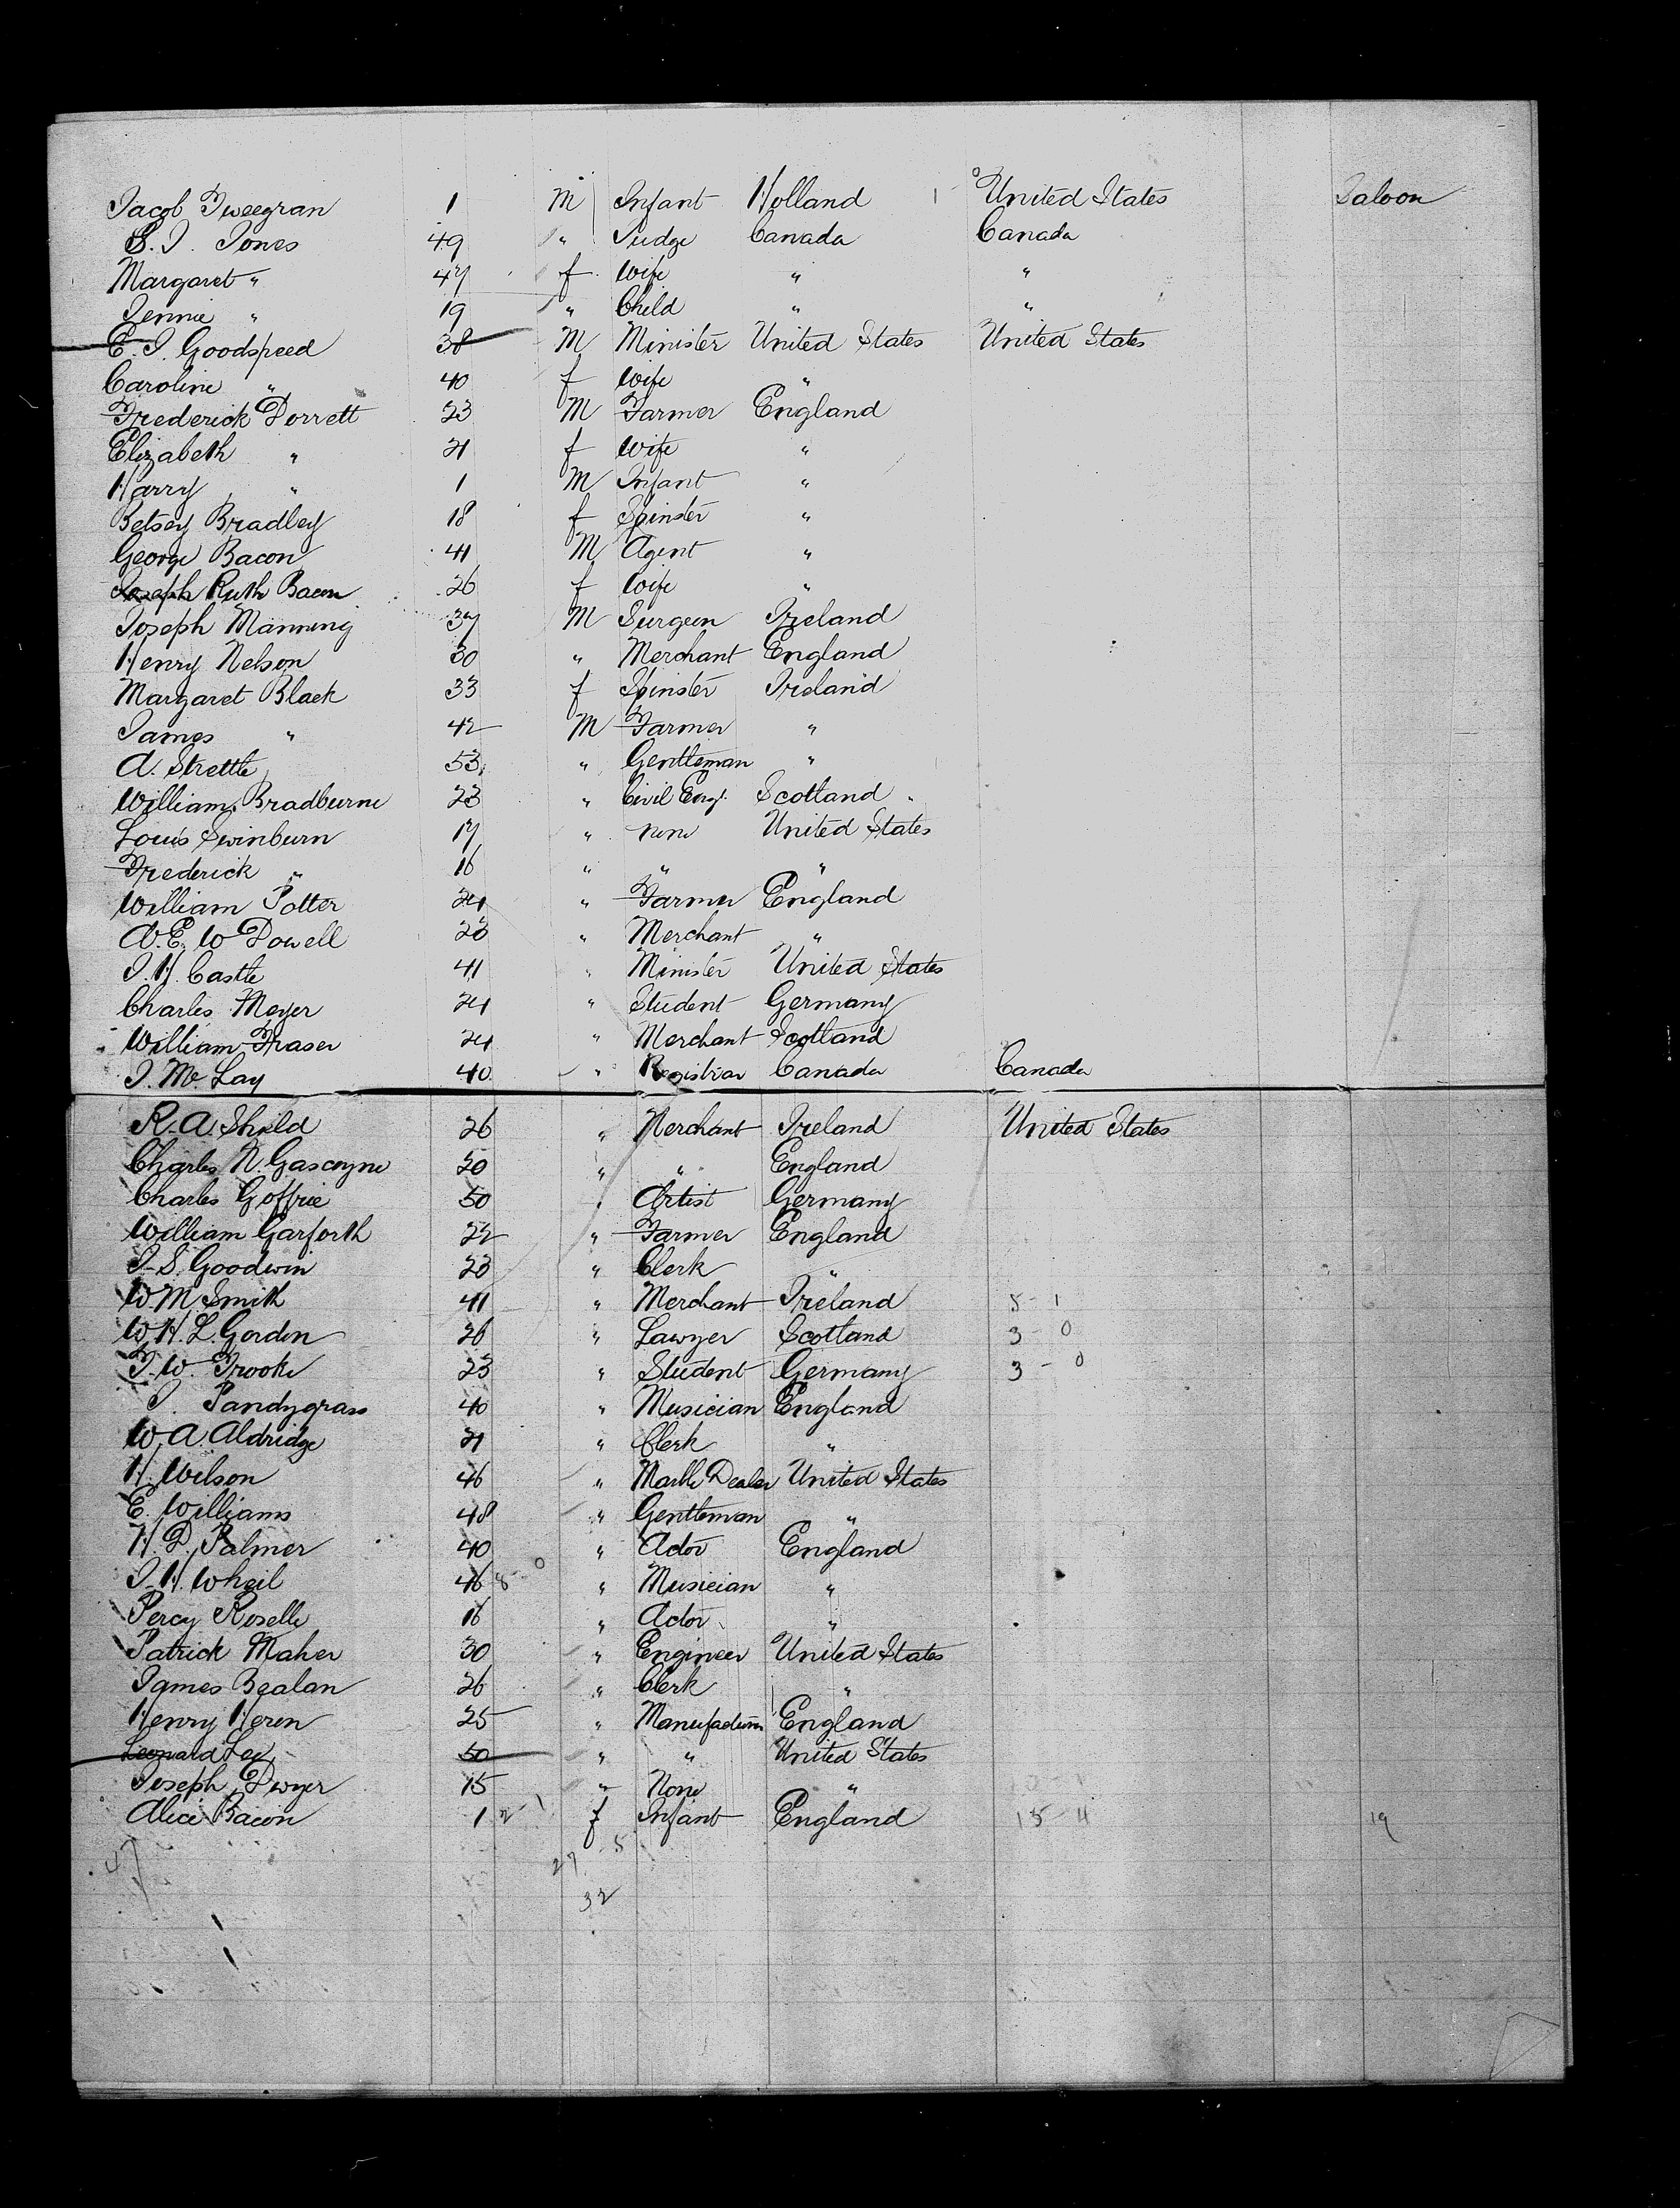 Jacob Tweegran 1 M Infant Holland 1 United States Saloon
S. J. Jones 49 " Judge Canada Canada
Margaret " 47 f Wife " "
Jennie " 19 " Child " "
E. J. Goodspeed 38 M Minister United States United States
Caroline " 40 f Wife "
Frederick Dorrett 23 M Farmer England
Elizabeth " 21 f Wife "
Harry " 1 M Infant "
Betsey Bradley 18 f Spinster "
George Bacon 41 M Agent "
Joseph Ruth Bacon 26 f Wife "
Joseph Manning 37 M Surgeon Ireland
Henry Nelson 30 " Merchant England
Margaret Black 33 f Spinster Ireland
James " 42 M Farmer "
A. Strettle 53 " Gentleman "
William Bradburne 23 " Civil Engr. Scotland "
Louis Swinburn 17 " none United States
Frederick " 16 " " "
William Potter 24 " Farmer England
A. E. W Dowell 23 " Merchant "
J. H. Castle 41 " Minister United States
Charles Meyer 24 " Student Germany
William Fraser 24 " Merchant Scotland
J. Mc Lay 40 " Registrar Canada Canada
R. A. Shield 26 " Merchant Ireland United States
Charles N. Gascoyne 20 " " England
Charles Goffrie 50 " Artist Germany
William Garforth 22 " Farmer England
J. S. Goodwin 23 " Clerk "
W. M. Smith 41 " Merchant Ireland 8 - 1
W. H. L. Gordon 26 " Lawyer Scotland 3 - 0
F. W. Frooke 23 " Student Germany 3 - 0
J. Pandygrass 40 " Musician England
W. A. Aldridge 21 " Clerk "
H. Wilson 46 " Marble Dealer United States
E. Williams 48 " Gentleman "
H. D. Palmer 40 " Actor England
J. H. Wheil 46 8 - 0 " Musician "
Percy Roselle 16 " Actor "
Patrick Maher 30 " Engineer United States
James Bealan 26 " Clerk "
Henry Heren 25 " Manufacturer England
Leonard Lee 50 " " United States
Joseph Dwyer 15 " None "
Alice Bacon 1 2 - 1 f Infant England 18 - 4 19
47 27 - 5
32